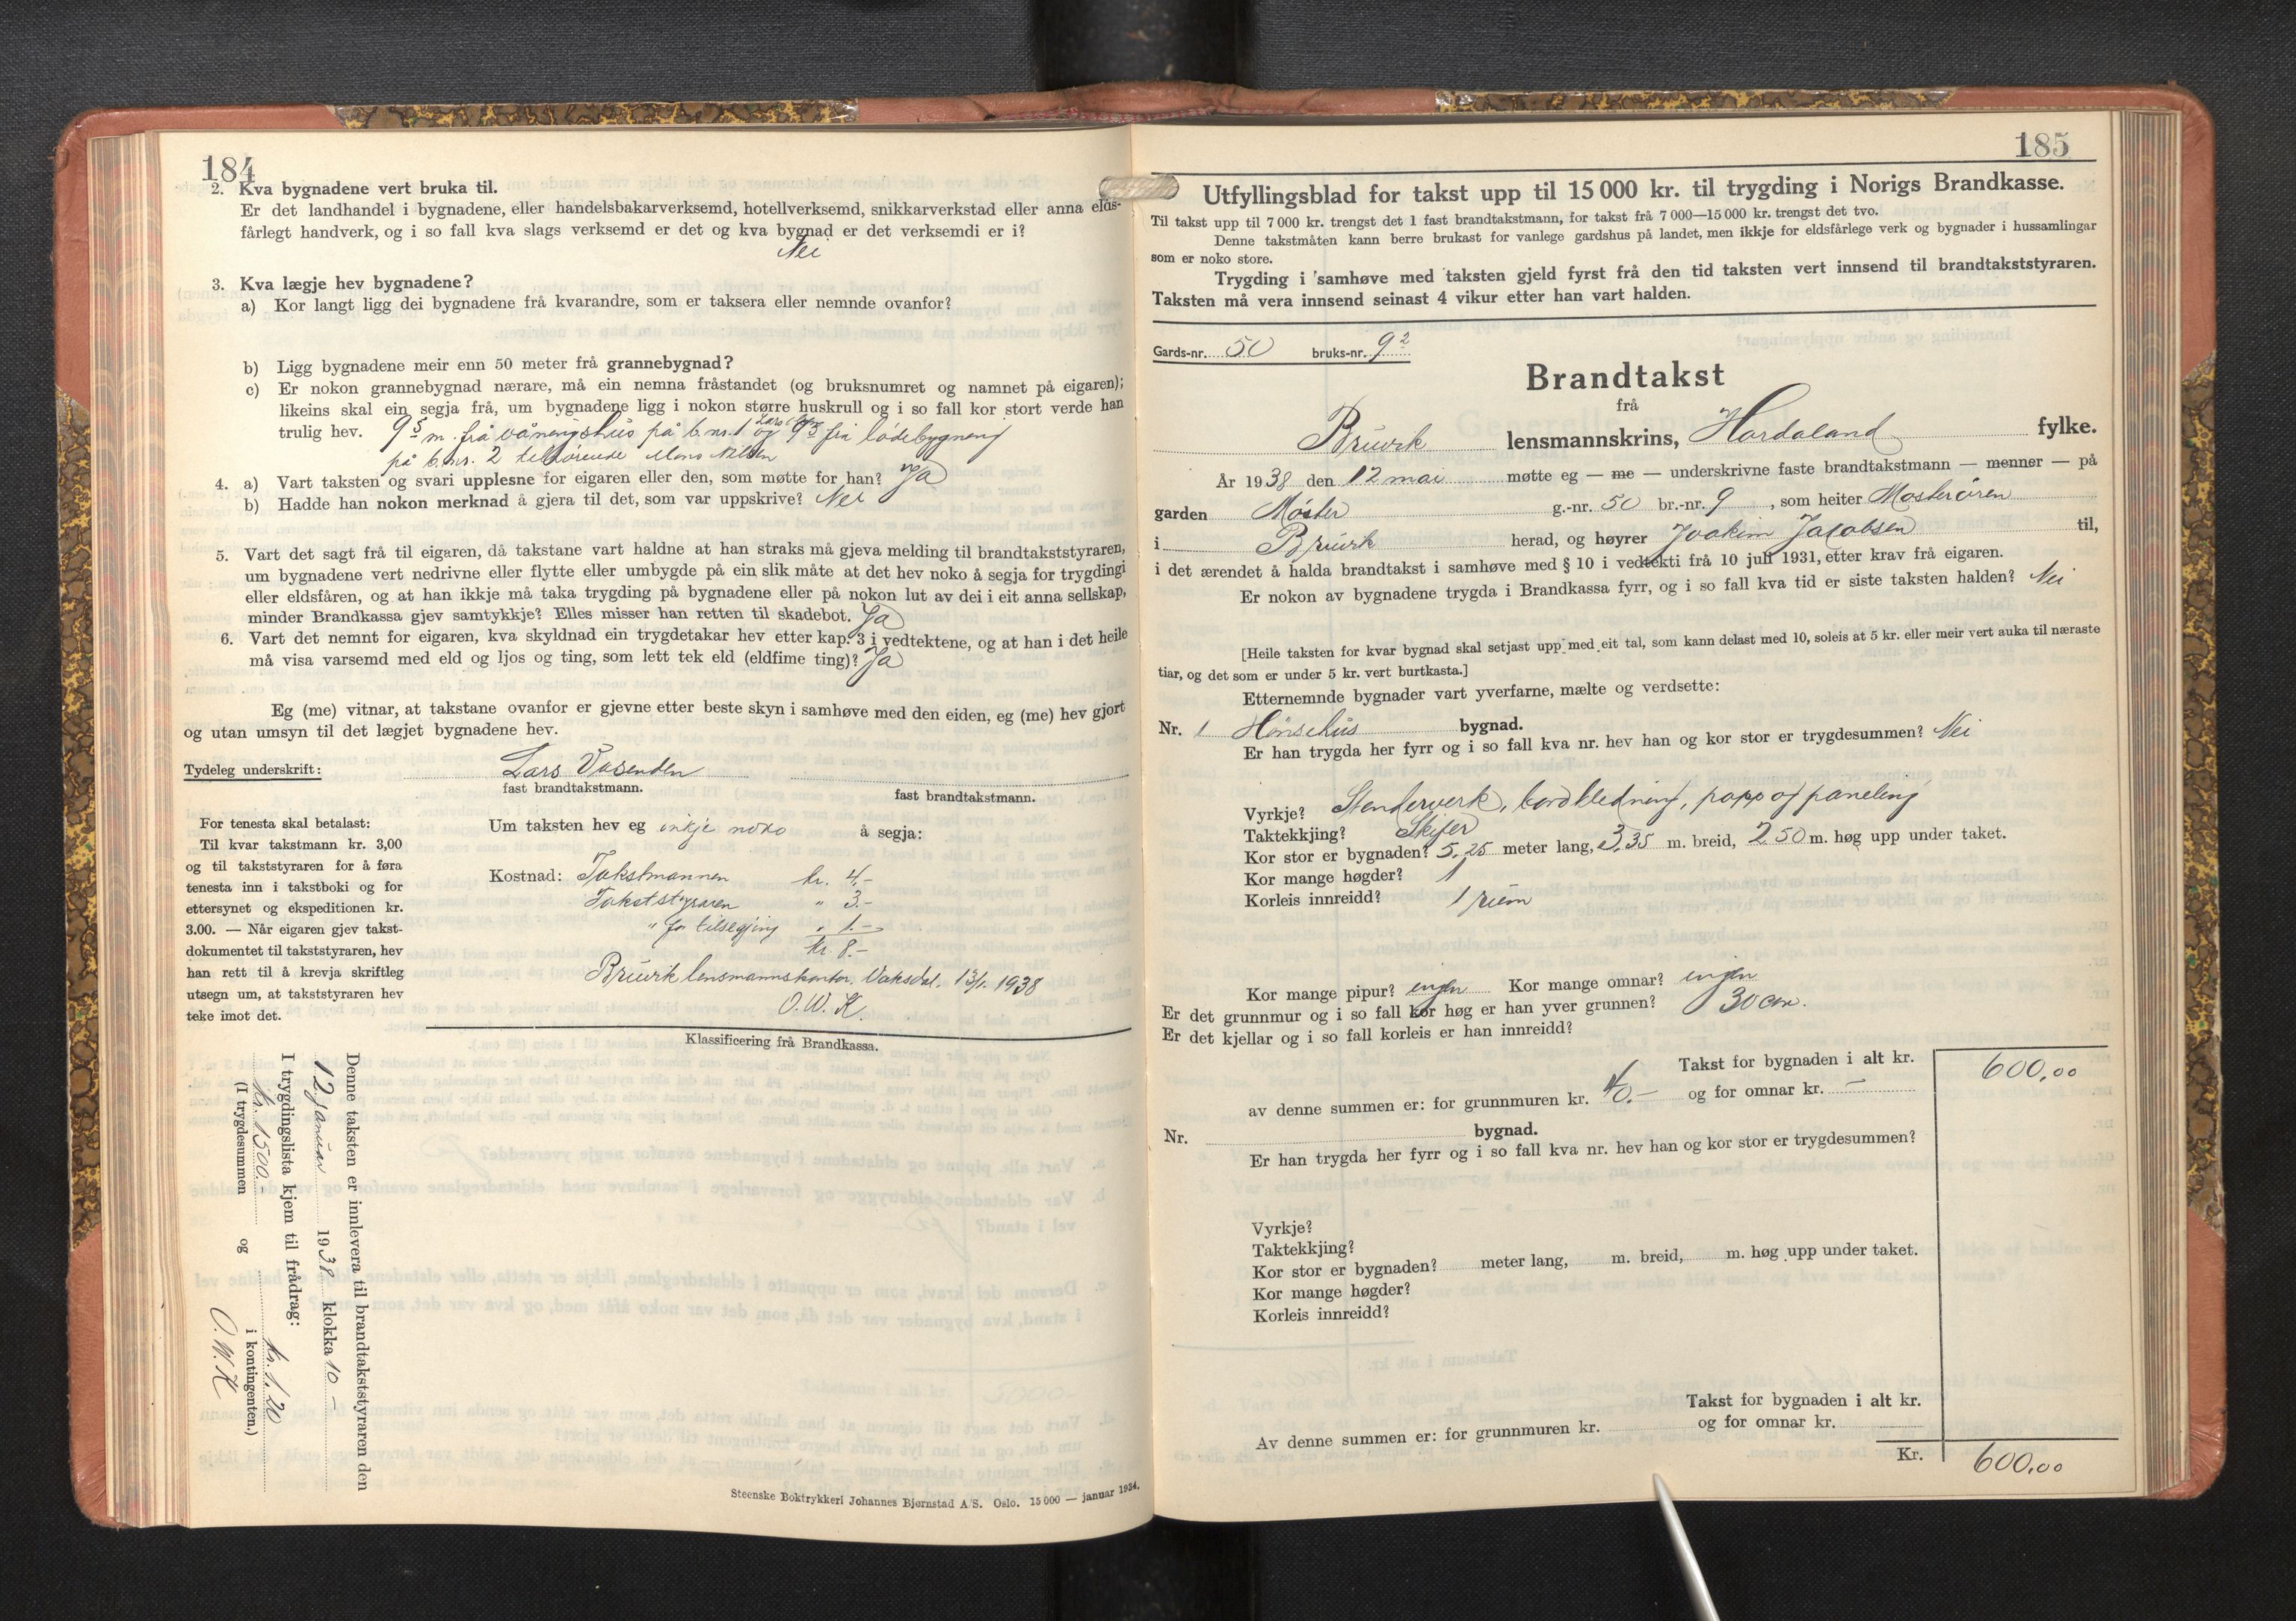 184
2. Kva bygnadene vert bruka til.
Er det landhandel i bygnadene, eller handelsbakarverksemd, hotellverksemd, snikkarverkstad eller anna elds-
fårlegt handverk, og i so fall kva slags verksemd er det og kva bygnad er det verksemdi er i?
Nei
3. Kva lægje hev bygnadene?
a) Kor langt ligg dei bygnadene frå kvarandre, som er taksera eller nemnde ovanfor?
b) Ligg bygnadene meir enn 50 meter frå grannebygnad?
c) Er nokon grannebygnad nærare, må ein nemna fråstandet (og bruksnumret og namnet på eigaren);
likeins skal ein segja frå, um bygnadene ligg i nokon større huskrull og i so fall kor stort verde han
trulig hev. 9 5 m. frå våningshus på b.nr. 1 og 9 5 frå lødebygning
på b.nr. 2 tilhørende Mons Nilsen
4. a) Vart taksten og svari upplesne for eigaren eller den, som møtte for han? Ja
b) Hadde han nokon merknad å gjera til det, som var uppskrive? Nei
5. Vart det sagt frå til eigaren, då takstane vart haldne at han straks må gjeva melding til brandtakststyraren,
um bygnadene vert nedrivne eller flytte eller umbygde på ein slik måte at det hev noko å segja for trygdingi
eller eldsfåren, og at han ikkje må taka trygding på bygnadene eller på nokon lut av dei i eit anna sellskap,
minder Brandkassa gjev samtykkje? Elles misser han retten til skadebot. Ja
6. Vart det nemnt for eigaren, kva skyldnad ein trygdetakar hev etter kap. 3 i vedtektene, og at han i det heile
må visa varsemd med eld og ljos og ting, som lett tek eld (eldfime ting)? Ja
Eg (me) vitnar, at takstane ovanfor er gjevne etter beste skyn i samhøve med den eiden, eg (me) hev gjort
og utan umsyn til det lægjet bygnadene hev.
Tydeleg underskrift: Lars Vasenden
fast brandtakstmann. fast brandtakstmann.
For tenesta skal betalast:
Til kvar takstmann kr. 3,00
og til takststyraren for å føra
tenesta inn i takstboki og for
ettersynet og ekspeditionen kr.
3.00. — Når eigaren gjev takst-
dokumentet til takststyraren, hev
han rett til å krevja skriftleg
utsegn um, at takststyraren hev
teke imot det.
Um taksten hev eg inkje noko å segja:
Kostnad: Takstmannen kr. 4.-
Takststyraren " 3.-
" for tilsegjing " 1.-
kr. 8.-
Bruvik lensmannskontor, Vaksdal. 13/1. 1938
O. W. K.
Klassificering frå Brandkassa.
Denne taksten er innlevera til brandtakststyraren den
12 januar 1938 klokka 10 -
I trygdingslista kjem til frådrag:
kr. 1500.- og kr. 1.20
(I trygdesummen i kontingenten.)
O. W. K
Steenske Boktrykkeri Johannes Bjørnstad A/S. Oslo. 15 000 — januar 1934.
185
Utfyllingsblad for takst upp til 15 000 kr. til trygding i Norigs Brandkasse.
Til takst upp til 7 000 kr. trengst det 1 fast brandtakstmann, for takst frå 7 000—15 000 kr. trengst det tvo.
Denne takstmåten kann berre brukast for vanlege gardshus på landet, men ikkje for eldsfårlege verk og bygnader i hussamlingar
som er noko store.
Trygding i samhøve med taksten gjeld fyrst frå den tid taksten vert innsend til brandtakststyraren.
Taksten må vera innsend seinast 4 vikur etter han vart halden.
Gards-nr. 50 bruks-nr. 9 2
Brandtakst
frå
Bruvik lensmannskrins, Hordaland fylke.
År 1938 den 12 mai møtte eg — me — underskrivne faste brandtakstmann — menner — på
garden Moster g.-nr. 50 br.-nr. 9, som heiter Mosterøren
i Bruvik herad, og høyrer Joakim Jacobsen til,
i det ærendet å halda brandtakst i samhøve med § 10 i vedtekti frå 10 juli 1931, etter krav frå eigaren.
Er nokon av bygnadene trygda i Brandkassa fyrr, og i so fall kva tid er siste taksten halden? Nei
[Heile taksten for kvar bygnad skal setjast upp med eit tal, som kann delast med 10, soleis at 5 kr. eller meir vert auka til næraste
tiar, og det som er under 5 kr. vert burtkasta.]
Etternemnde bygnader vart yverfarne, mælte og verdsette:
Nr. 1 Hønsehus bygnad.
Er han trygda her fyrr og i so fall kva nr. hev han og kor stor er trygdesummen? Nei
Vyrkje? Stenderverk, bordkledning, papp og paneling
Taktekkjing? Skifer
Kor stor er bygnaden? 5.25 meter lang, 3.35 m. breid, 2.50 m. høg upp under taket.
Kor mange høgder? 1
Korleis innreidd? 1 rum
Kor mange pipur? ingen Kor mange omnar? ingen
Er det grunnmur og i so fall kor høg er han yver grunnen? 30 cm.
Er det kjellar og i so fall korleis er han innreidd?
Takst for bygnaden i alt kr. 600,00
av denne summen er: for grunnmuren kr. 40.- og for omnar kr. -
Nr. bygnad.
Er han trygda her fyrr og i so fall kva nr. hev han og kor stor er trygdesummen?
Vyrkje?
Taktekkjing?
Kor stor er bygnaden? meter lang, m. breid, m. høg upp under taket.
Kor mange høgder?
Korleis innreidd?
Takst for bygnaden i alt kr.
Av denne summen er: for grunnmuren kr. og for omnar kr.
Kr. 600,00